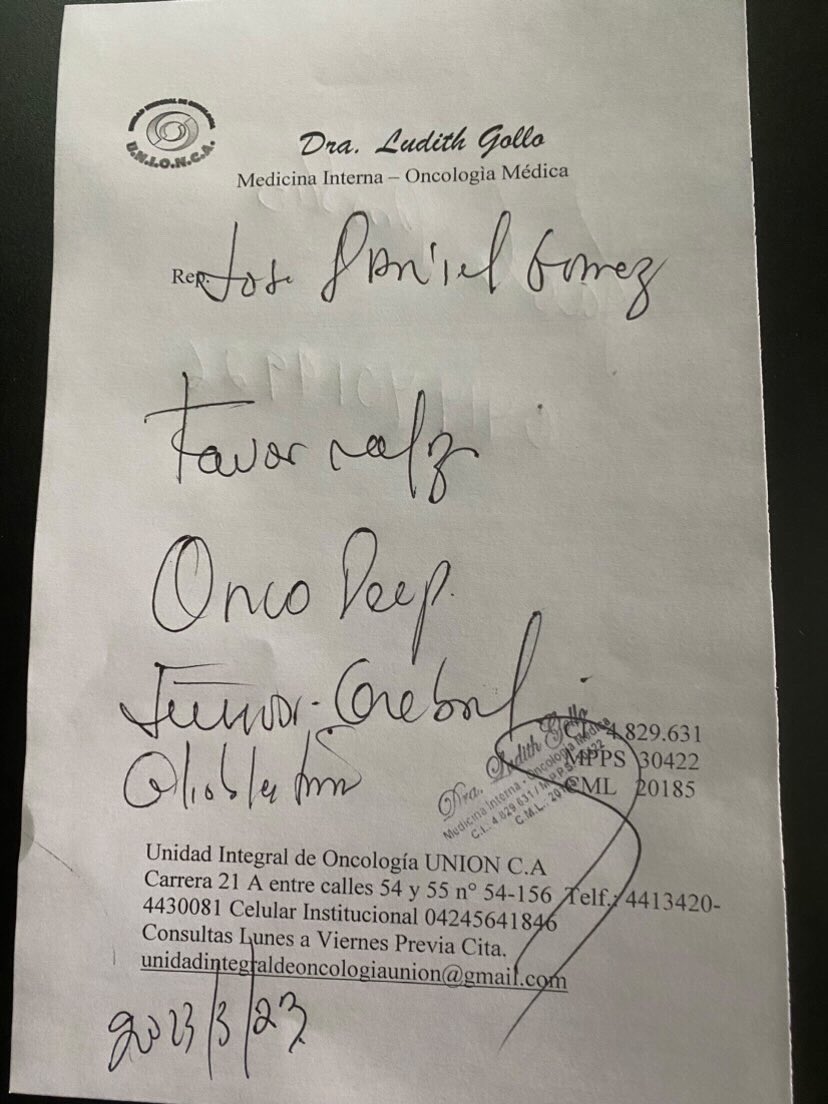 UNIDAD INTEGRAL DE ONCOLOGIA
U.N.I.O.N.C.A.
Dra. Ludith Gollo
Medicina Interna – Oncologìa Médica
Rep. Jose Daniel Gomez
Favor realz
Onco Deep.
Tumor Cerebral
C.I. 4.829.631
MPPS 30422
CML 20185
Dra. Ludith Gollo
Medicina Interna - Oncología Médica
C.I.. 4.829.631 / M.P.P.S.
C.M.L..
Unidad Integral de Oncología UNION C.A
Carrera 21 A entre calles 54 y 55 n° 54-156 Telf.: 4413420-
4430081 Celular Institucional 04245641846
Consultas Lunes a Viernes Previa Cita.
unidadintegraldeoncologiaunion@gmail.com
2023/3/23